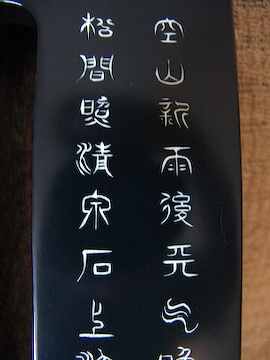 空山新雨後天气晚
松間照清泉石上流